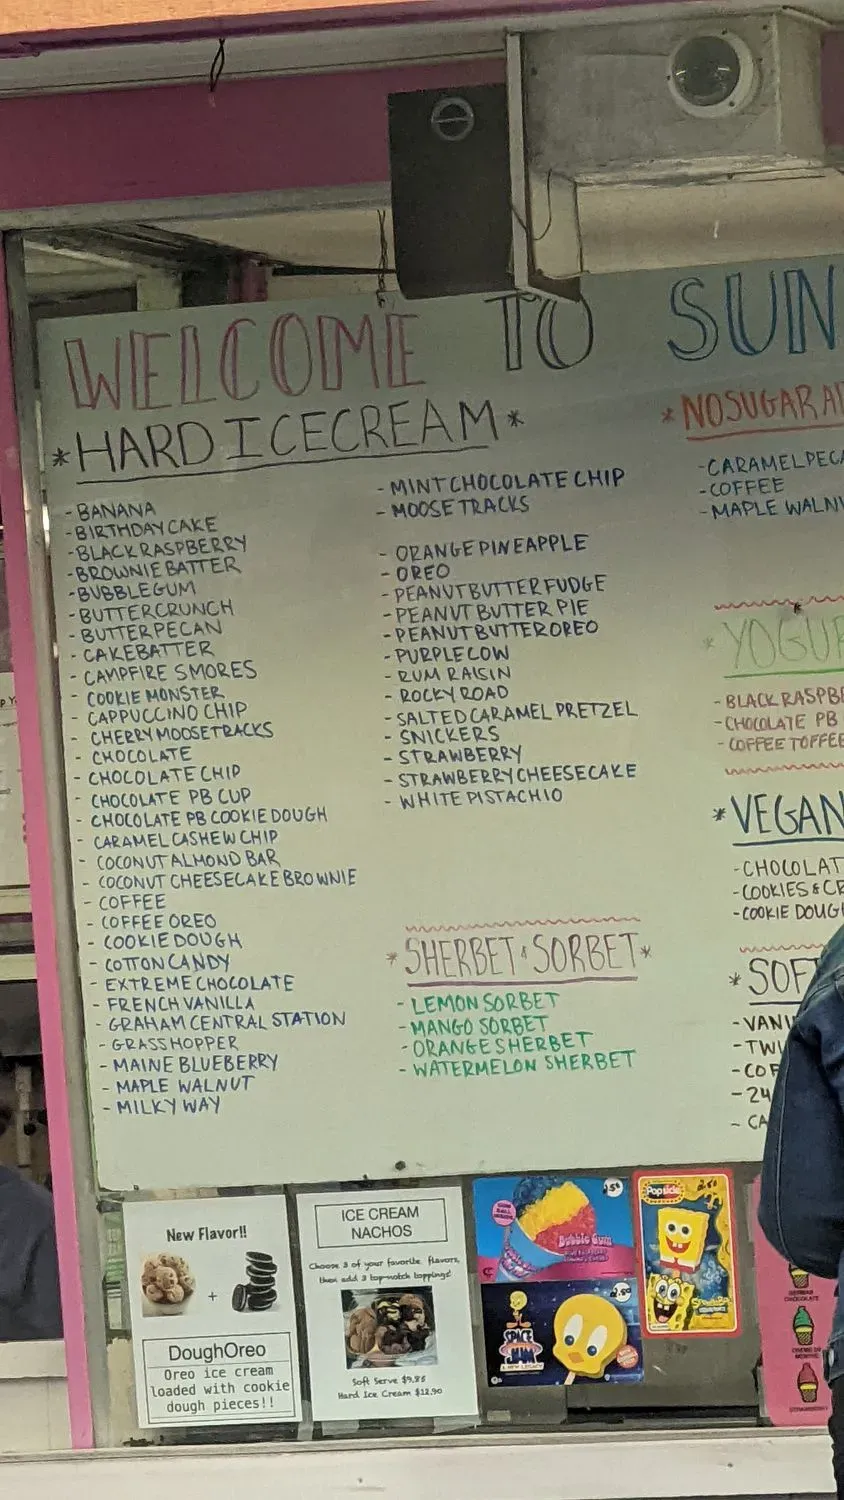 WELCOME TO SUN
*HARD ICECREAM*
-BANANA
-BIRTHDAY CAKE
-BLACK RASPBERRY
-BROWNIE BATTER
-BUBBLEGUM
-BUTTERCRUNCH
-BUTTER PECAN
-CAKEBATTER
-CAMPFIRE SMORES
-COOKIE MONSTER
-CAPPUCCINO CHIP
-CHERRY MOOSETRACKS
-CHOCOLATE
-CHOCOLATE CHIP
-CHOCOLATE PB CUP
-CHOCOLATE PB COOKIE DOUGH
-CARAMEL CASHEW CHIP
-COCONUT ALMOND BAR
-COCONUT CHEESECAKE BROWNIE
-COFFEE
-COFFEE OREO
-COOKIE DOUGH
-COTTON CANDY
-EXTREME CHOCOLATE
-FRENCH VANILLA
-GRAHAM CENTRAL STATION
-GRASSHOPPER
-MAINE BLUEBERRY
-MAPLE WALNUT
-MILKY WAY
-MINT CHOCOLATE CHIP
-MOOSE TRACKS
-ORANGE PINEAPPLE
-OREO
-PEANUT BUTTER FUDGE
-PEANUT BUTTER PIE
-PEANUT BUTTER OREO
-PURPLE COW
-RUM RAISIN
-ROCKY ROAD
-SALTED CARAMEL PRETZEL
-SNICKERS
-STRAWBERRY
-STRAWBERRY CHEESECAKE
-WHITE PISTACHIO
*SHERBET & SORBET*
-LEMON SORBET
-MANGO SORBET
-ORANGE SHERBET
-WATERMELON SHERBET
*NO SUGAR A
-CARAMEL PECA
-COFFEE
-MAPLE WALN
*YOGUR
-BLACK RASPB
-CHOCOLATE PB
-COFFEE TOFFEE
*VEGAN
-CHOCOLAT
-COOKIES & CR
-COOKIE DOUG
*SOF
-VANI
-TWI
-COF
-24
-CA
New Flavor!!
+
DoughOreo
Oreo ice cream
loaded with cookie
dough pieces!!
ICE CREAM
NACHOS
Choose 3 of your favorite flavors,
then add 3 top-notch toppings!
Soft Serve $9.85
Hard Ice Cream $12.90
Bubble Gum
SPACE
JAM
A NEW LEGACY
2.50
Popsicle
2.50
SpongeBob